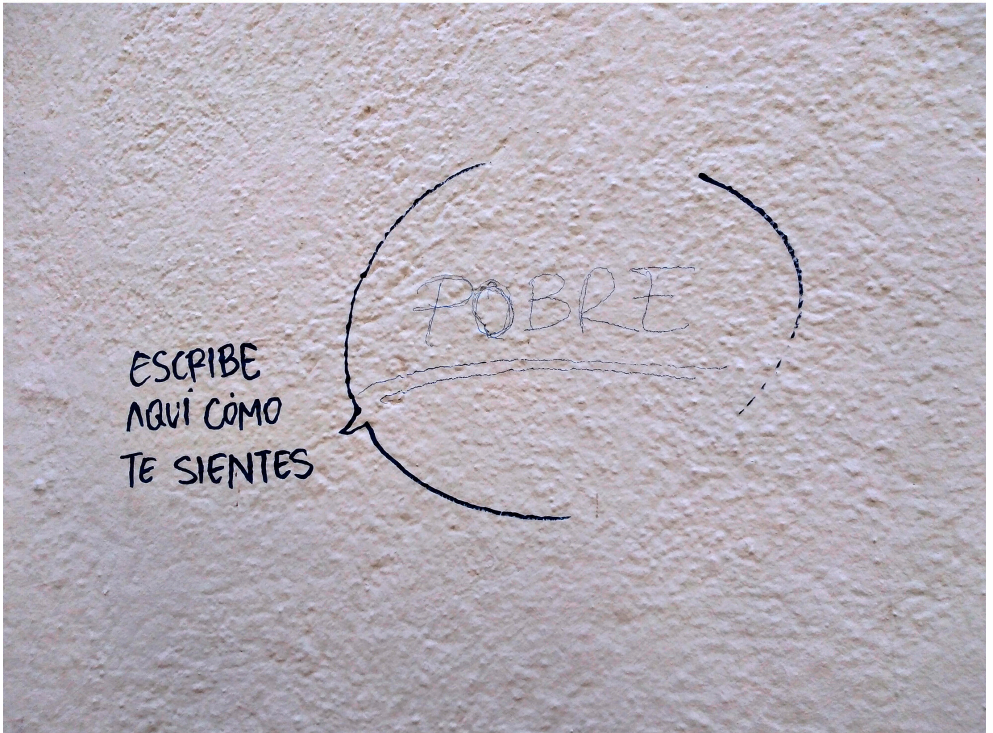 ESCRIBE
AQUÍ CÓMO
TE SIENTES
POBRE